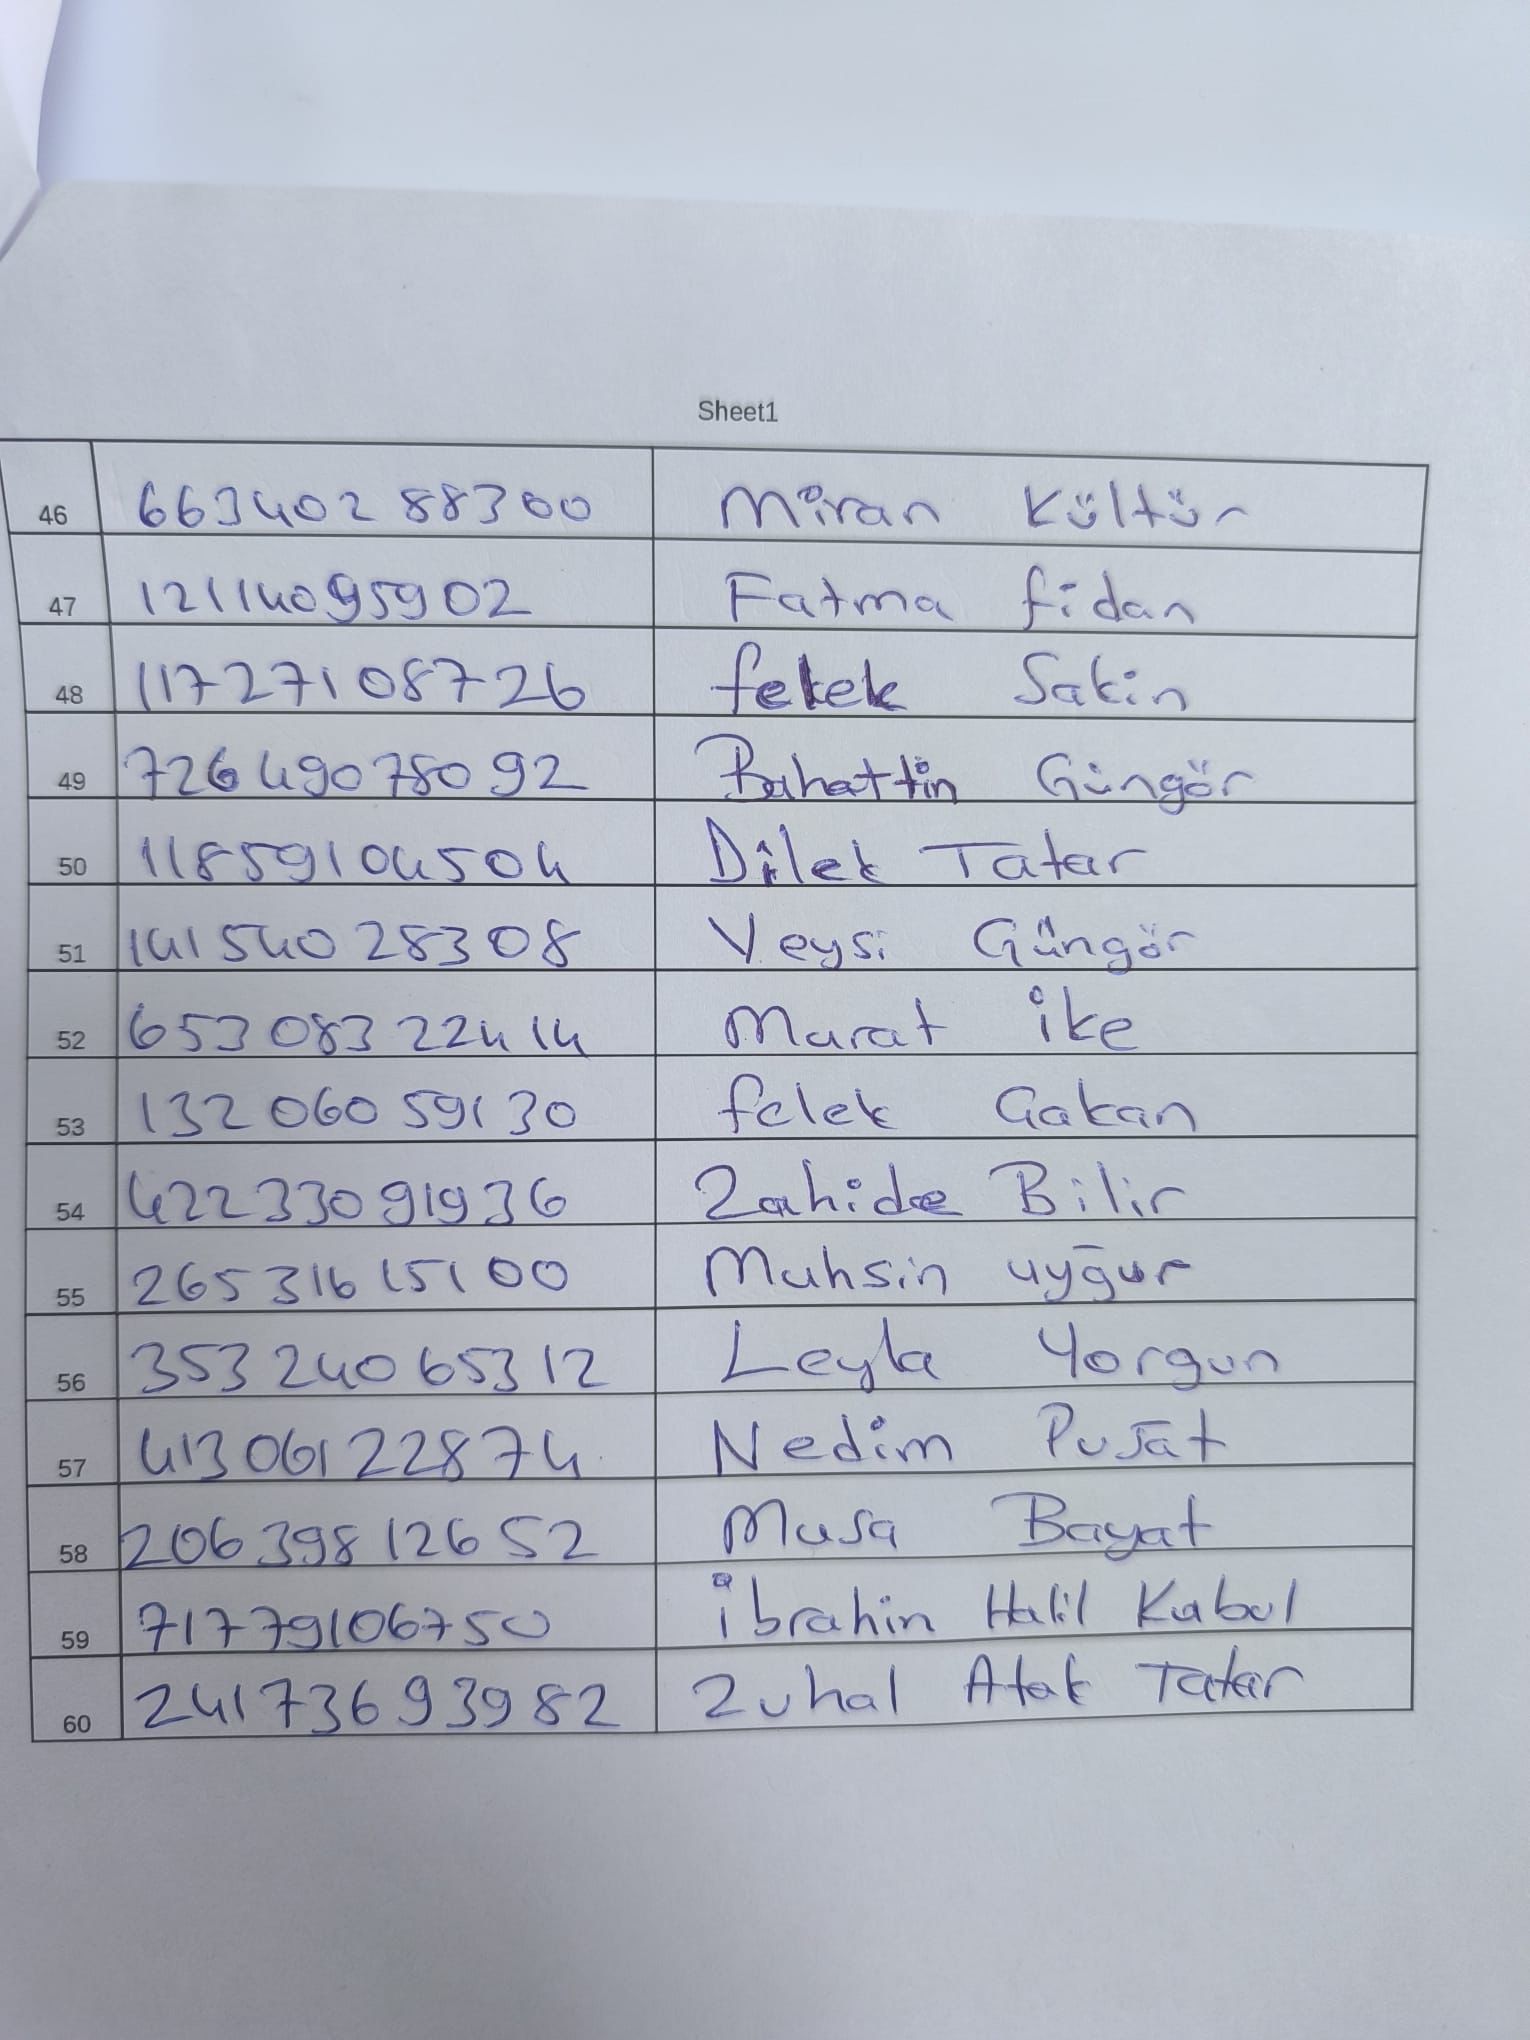 Sheet1
46 66340288300 Miran Kültür
47 12114095902 Fatma fidan
48 11727108726 felek Sakin
49 72649078092 Bahattin Güngör
50 11859104504 Dilek Tatar
51 14154028308 Veysi Güngör
52 65308322414 Murat ike
53 13206059130 felek Gakan
54 42233091936 Zahide Bilir
55 26531615100 Muhsin uyğur
56 35324065312 Leyla Yorgun
57 41306122874 Nedim Pusat
58 20639812652 Musa Bayat
59 71779106750 ibrahin Halil Kabul
60 24173693982 Zuhal Atak Tatar